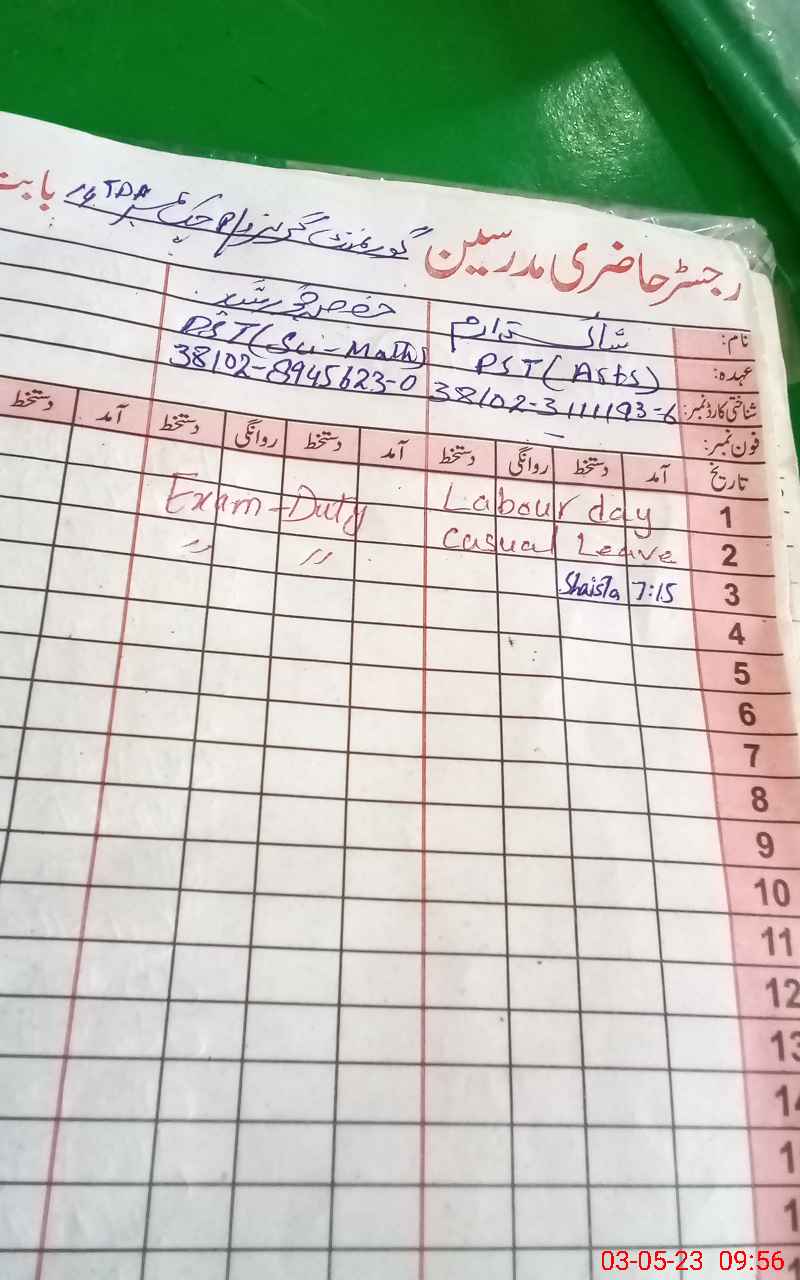 رجسٹر حاضری مدرسین گورنمنٹ گرلز چک نمبر 14 TDA بابت
نام:
عہدہ: PST (Arts) PST (Sci-Math)
شناختی کارڈ نمبر: 38102-3111193-6 38102-8945623-0
فون نمبر: –
تاریخ آمد دستخط روانگی دستخط آمد دستخط روانگی دستخط آمد دستخط
1 Labour day Exam-Duty
2 Casual Leave 〃 〃
3 7:15 Shaista
4
5
6
7
8
9
10
11
12
13
14
03-05-23 09:56